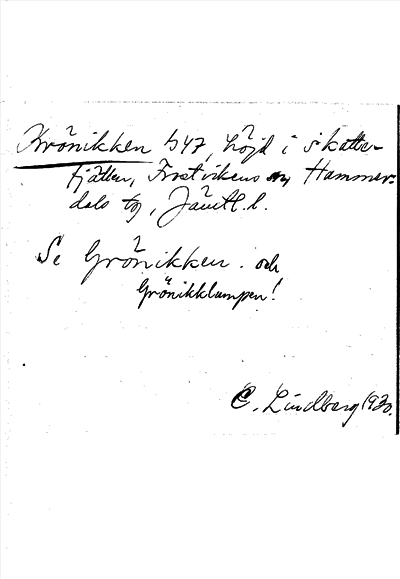 Krönikken 547, höjd i skatte-
fjällen, Frostvikens sn, Hammer-
dals tg, Jämtl. l.
Se Grönikken. och
Grönikklumpen!
C. Lindberg 1930.